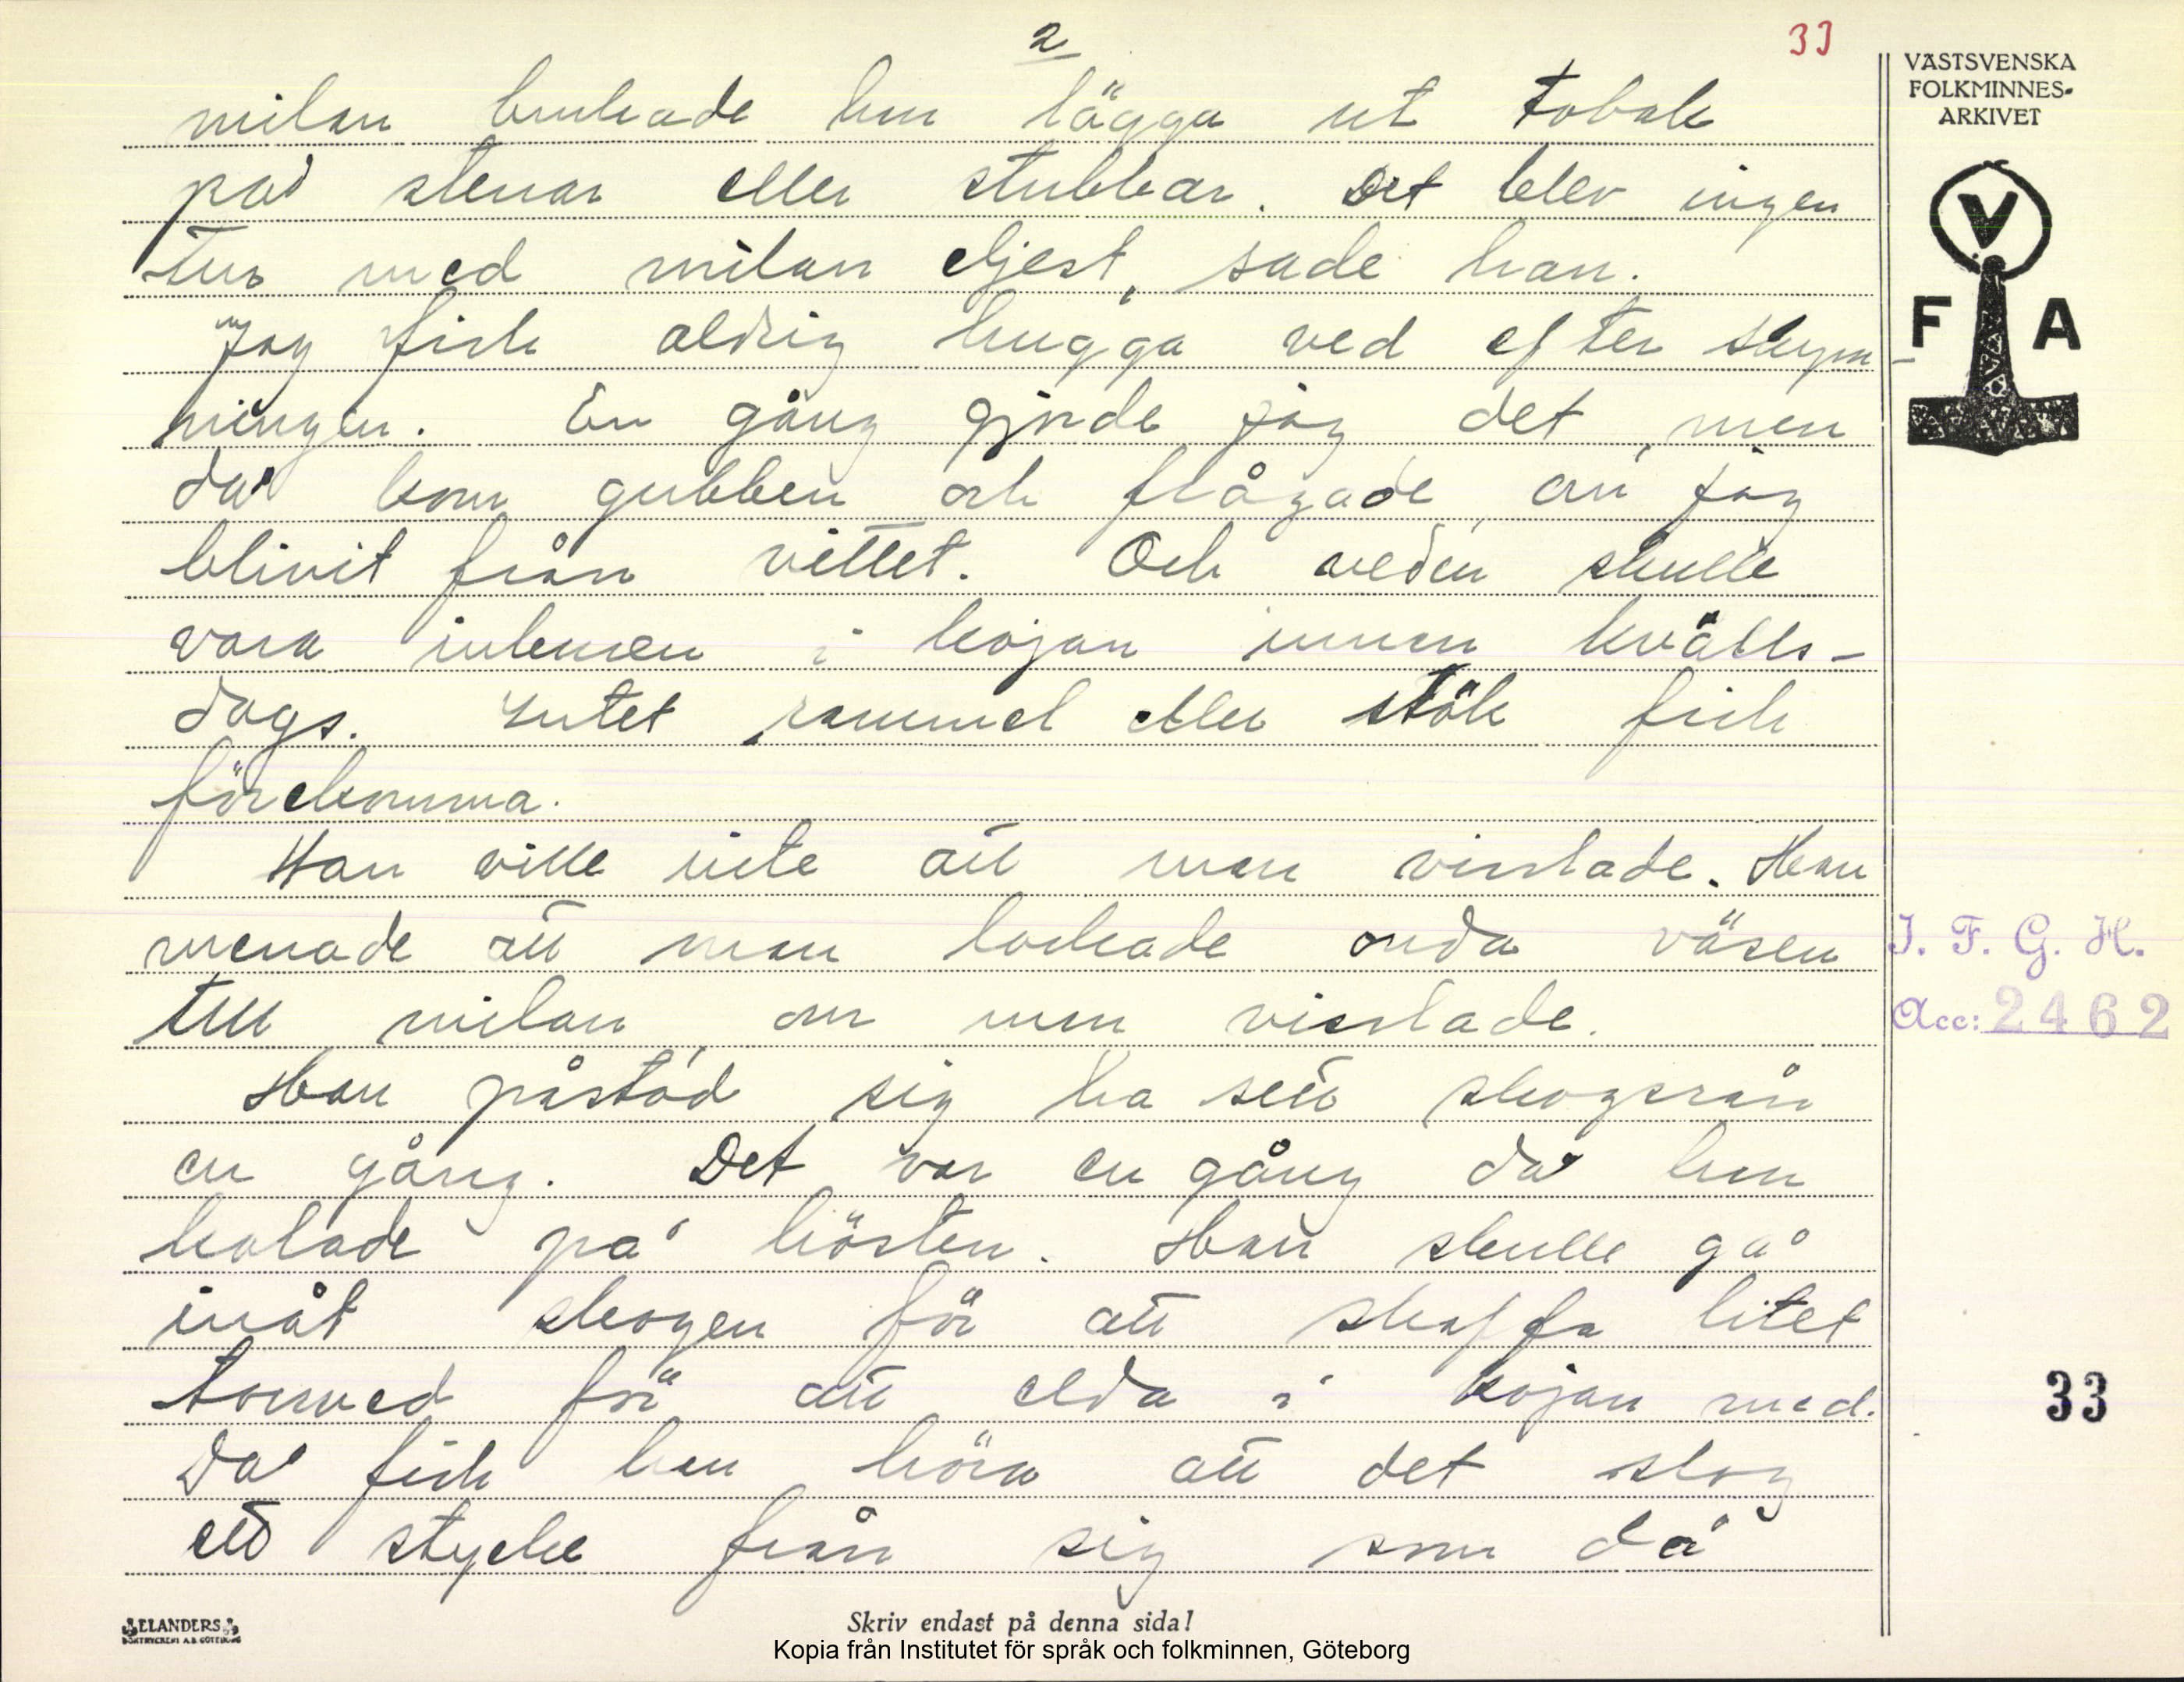 2
33
milan brukade han lägga ut tobak
på stenar eller stubbar. Det blev ingen
tur med milan eljest, sade han.
Jag fick aldrig hugga ved efter skym-
ningen. En gång gjorde jag det, men
då kom gubben och frågade, om jag
blivit från vettet. Och veden skulle
vara inburen i kojan innan kvälls-
dags. Intet rammel eller stök fick
förekomma.
Han ville inte att man visslade. Han
menade att man lockade onda väsen
till milan, om man visslade.
Han påstod sig ha sett skogsrån
en gång. Det var en gång då han
kolade på hösten. Han skulle gå
inåt skogen för att skaffa litet
torrved för att elda i kojan med.
Då fick han höra att det slog
ett stycke från sig som då
VÄSTSVENSKA
FOLKMINNES-
ARKIVET
V
F A
I. F. G. H.
Acc: 2462
33
ELANDERS
BOKTRYCKERI A.B. GÖTEBORG
Skriv endast på denna sida!
Kopia från Institutet för språk och folkminnen, Göteborg